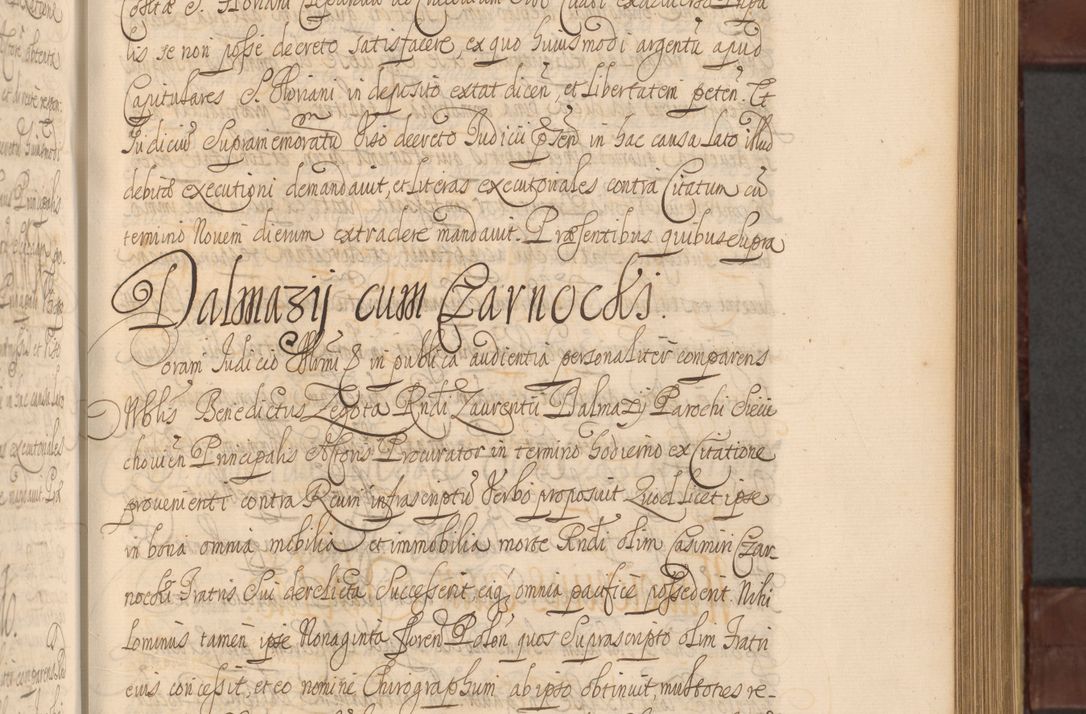 lis se non posse decreto satisfacere, ex quo huiusmodi argentū apud
Capitulares S. Floriani in deposito extat dicen̄, et Libertatem peten̄. Et
Judiciū Supramemoratū Viso decreto Judicii in hac causa lato illud
debitæ executioni demandauit, et literas executoriales contra Citatum cū
termino Noueni dierum extradere mandauit. Præsentibus quibus Supra
Dalmazij cum Czarnocki
Coram Judicio in publica audientia personaliter comparens
Nobilis Benedictus Zegota Rndi Laurentii Dalmazij Parochi
chouien̄ Principalis Actoris Procurator in termino hodierno ex Citatione
prouenienti contra Reum infrascriptū Verbo proposuit Quod licet ipse
in bona omnia mobilia et immobilia morte Rndi olim Casimiri Czar-
nocki Fratris Sui derelicta Successerit, eaq́ omnia pacifice possederit. Nihi
lominus tamen ipse Nonaginta Floren Polon̄ quos Suprascripto olim Fratri
eius concessit, et eo nomine Chirographum ab ipso obtinuit, multoties re-